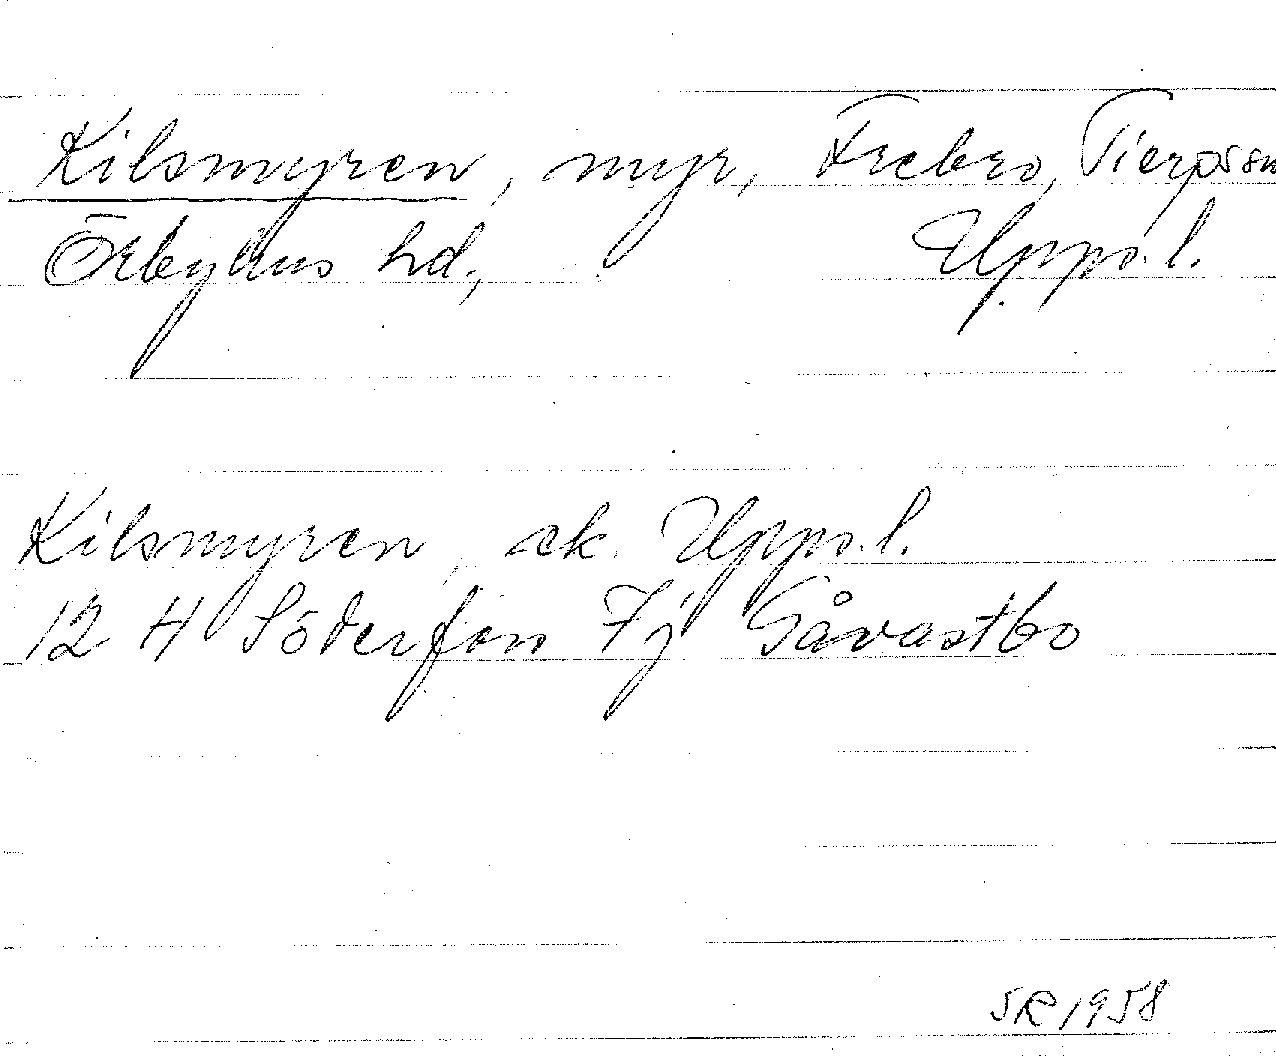 Kilsmyren, myr, Frebro, Tierps sn
Örbyhus hd., Upps.l.
Kilsmyren, ek. Upps.l.
12 H Söderfors 7j Gåvastbo
SR 1958